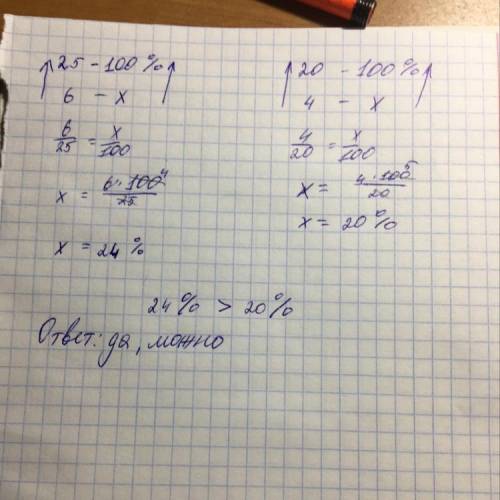 25 - 100%
6 - x
6/25 = x/100
x = 6 · 100 4/25
x = 24%
20 - 100%
4 - x
4/20 = x/100
x = 4 · 100 5/20
x = 20%
24% > 20%
Ответ: да, можно